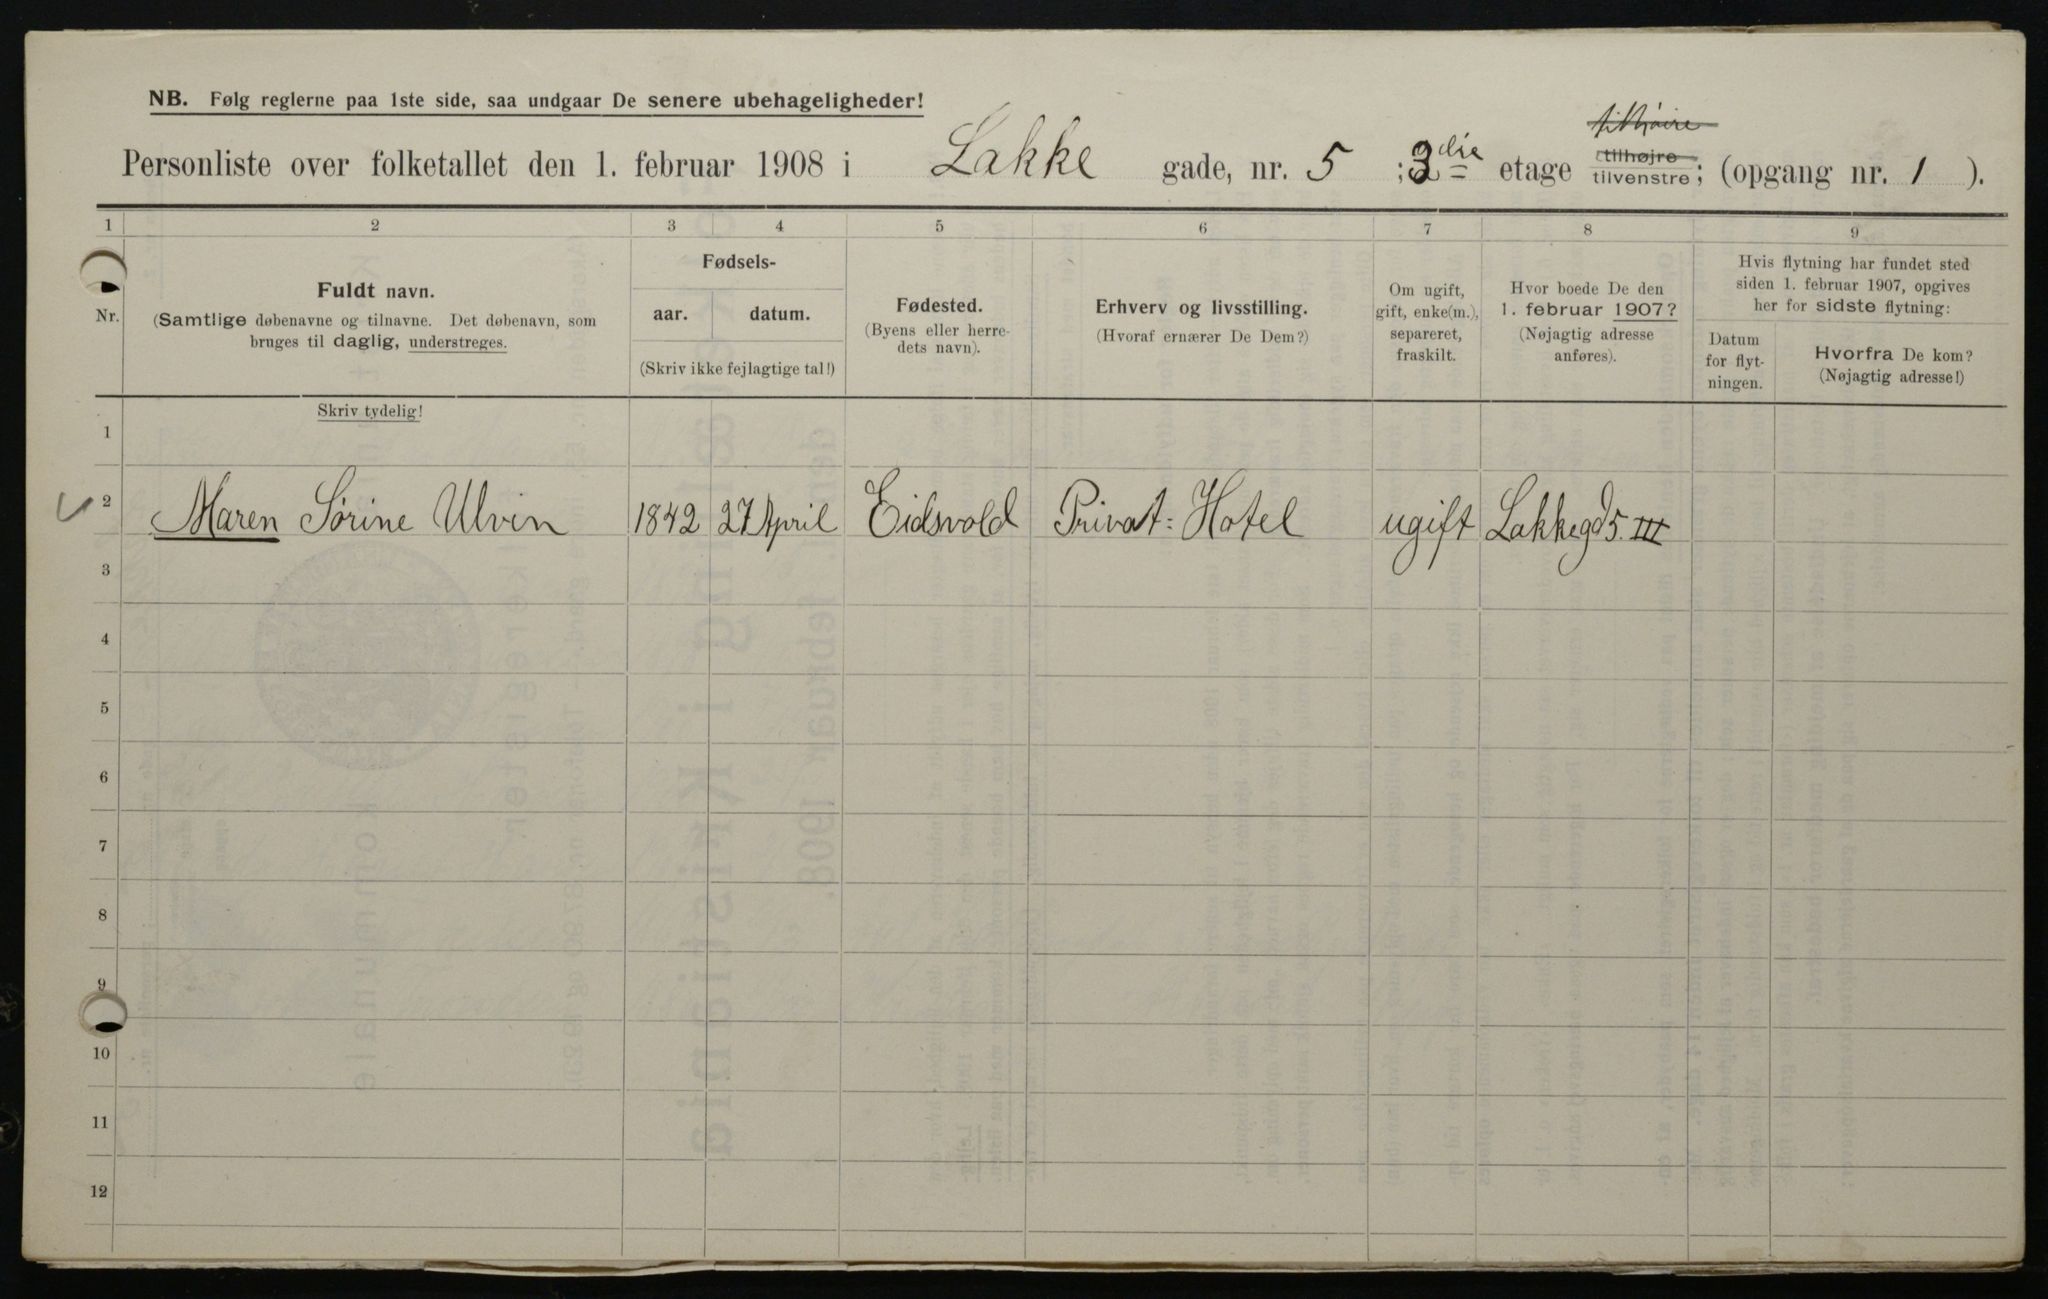 NB. Følg reglerne paa 1ste side, saa undgaar De senere ubehageligheder!
Personliste over folketallet den 1. februar 1908 i Lakke gade, nr. 5 ; 3die etage tilhøjre tilvenstre; (opgang nr. 1 ).
1 2 3 4 5 6 7 8 9
Nr.
Fuldt navn.
(Samtlige døbenavne og tilnavne. Det døbenavn, som
bruges til daglig, understreges.
Skriv tydelig!
Fødsels-
aar. datum.
(Skriv ikke fejlagtige tal!)
Fødested.
(Byens eller herre-
dets navn).
Erhverv og livsstilling.
(Hvoraf ernærer De Dem?)
Om ugift,
gift, enke(m.),
separeret,
fraskilt.
Hvor boede De den
1. februar 1907?
(Nøjagtig adresse
anføres).
Hvis flytning har fundet sted
siden 1. februar 1907, opgives
her for sidste flytning:
Datum
for flyt-
ningen.
Hvorfra De kom?
(Nøjagtig adresse!)
1
2 Maren Sørine Ulvin 1842 27 April Eidsvold Privat: Hotel ugift Lakkegd 5. III
3
4
5
6
7
8
9
10
11
12